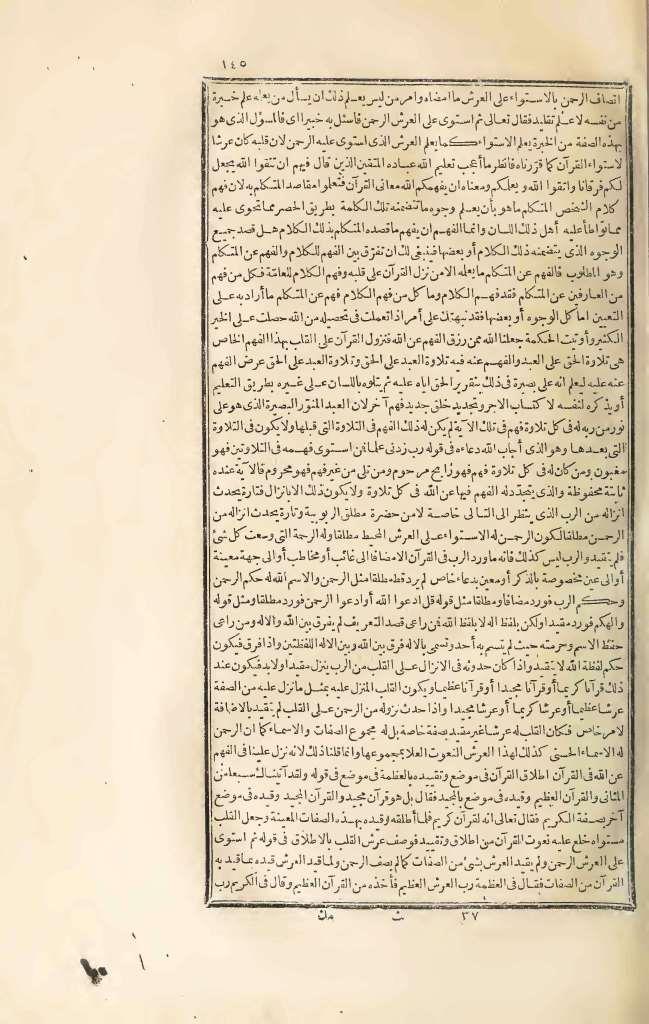 ١٤٥
اتصاف الرحمن بالاستواء على العرش ما امضاه وامر من ليس يعلم ذلك ان يسأل من يعلمه علم خبرة
من نفسه لا علم تقليد فقال تعالى ثم استوى على العرش الرحمن فاسئل به خبيرا اى فالمسؤل الذى هو
بهذه الصفة من الخبرة يعلم الاستواء كما يعلم العرش الذى استوى عليه الرحمن لان قلبه كان عرشا
لاستواء القرآن كما قررناه فانظر ما أعجب تعليم الله عباده المتقين الذين قال فيهم ان تتقوا الله يجعل
لكم فرقانا واتقوا الله ويعلمكم الله ومعناه ان يفهمكم الله معانى القرآن فتعلموا مقاصد المتكلم به لان فهم
كلام الشخص المتكلم ما هو بأن يعلم وجوه ما تتضمنه تلك الكلمة بطريق الحصر مما تحوى عليه
مما تواطأ عليه أهل ذلك اللسان وانما الفهم ان يفهم ما قصده المتكلم بذلك الكلام هل قصد جميع
الوجوه الذى يتضمنه ذلك الكلام أو بعضها فينبغى لك ان تفرق بين الفهم للكلام والفهم عن المتكلم
وهو المطلوب فالفهم عن المتكلم ما يعلمه الا من نزل القرآن على قلبه وفهم الكلام للعامة فكل من فهم
من العارفين عن المتكلم فقد فهم الكلام وما كل من فهم الكلام فهم عن المتكلم ما أراد به على
التعيين اما كل الوجوه أو بعضها فقد نبهتك على أمر اذا تعملت فى تحصيله من الله حصلت على الخير
الكثير وأوتيت الحكمة جعلنا الله ممن رزق الفهم عن الله فنزول القرآن على القلب بهذا الفهم الخاص
هى تلاوة الحق على العبد والفهم عنه فيه تلاوة العبد على الحق وتلاوة العبد على الحق عرض الفهم
عنه عليه ليعلم انه على بصيرة فى ذلك بتقرير الحق اياه عليه ثم يتلوه باللسان على غيره بطريق التعليم
أو يذكره لنفسه لاكتساب الاجر وتجديد خلق جديد فهم آخر لان العبد المنور البصيرة الذى هو على
نور من ربه له فى كل تلاوة فهم فى تلك الآية لم يكن له ذلك الفهم فى التلاوة التى قبلها ولا يكون فى التلاوة
التى بعدها وهو الذى أجاب الله دعاءه فى قوله رب زدنى علما فمن استوى فهمه فى التلاوتين فهو
مغبون ومن كان له فى كل تلاوة فهم فهو رابح مرحوم ومن تلى من غير فهم فهو محروم فالآية عنده
ثابتة محفوظة والذى يتجدد له الفهم فيها عن الله فى كل تلاوة ولا يكون ذلك الا بانزال فتارة يحدث
انزاله من الرب الذى ينظر الى التالى خاصة لا من حضرة مطلق الربوبية وتارة يحدث انزاله من
الرحمن مطلقا لكون الرحمن له الاستواء على العرش المحيط مطلقا وله الرحمة التى وسعت كل شئ
فلم يتقيد والرب ليس كذلك فانه ما ورد الرب فى القرآن الا مضافا الى غائب أو مخاطب أو الى جهة معينة
أو الى عين مخصوصة بالذكر أو معين بدعاء خاص لم يرد قط مطلقا مثل الرحمن والاسم الله له حكم الرحمن
وحكم الرب فورد مضافا ومطلقا مثل قوله قل ادعوا الله أو ادعوا الرحمن فورد مطلقا ومثل قوله
والهكم فورد مقيدا ولكن بلفظ اله لا بلفظ الله فمن راعى قصد التعريف لم يفرق بين الله والاله ومن راعى
حفظ الاسم وحرمته حيث لم يتسم به أحد وتسمى بالاله فرق بين الله وبين الاله اللفظتين واذا فرق فيكون
حكم لفظة الله لا يتقيد واذا كان حدوثه فى الانزال على القلب من الرب ينزل مقيدا ولابد فيكون عند
ذلك قرآنا كريما أو قرآنا مجيدا أو قرآنا عظيما ويكون القلب المنزل عليه بمثل ما نزل عليه من الصفة
عرشا عظيما أو عرشا كريما أو عرشا مجيدا واذا حدث نزوله من الرحمن على القلب لم يتقيد بالاضافة
لامر خاص فكان القلب له عرشا غير مقيد بصفة خاصة بل له مجموع الصفات والاسماء كما ان الرحمن
له الاسماء الحسنى كذلك لهذا العرش النعوت العلا بمجموعها وانما قلنا ذلك لانه نزل علينا فى الفهم
عن الله فى القرآن اطلاق القرآن فى موضع وتقييده بالعظمة فى موضع فى قوله ولقد آتيناك سبعا من
المثانى والقرآن العظيم وقيده فى موضع بالمجيد فقال بل هو قرآن مجيد والقرآن المجيد وقيده فى موضع
آخر بصفة الكريم فقال تعالى انه لقرآن كريم فلما أطلقه وقيده بهذه الصفات المعينة وجعل القلب
مستواه خلع عليه نعوت القرآن من اطلاق وتقييد فوصف عرش القلب بالاطلاق فى قوله ثم استوى
على العرش الرحمن ولم يقيد العرش بشئ من الصفات كما لم يصف الرحمن ولما قيد العرش قيده بما قيد به
القرآن من الصفات فقال فى العظمة رب العرش العظيم فأخذه من القرآن العظيم وقال فى الكريم رب
٣٧ ث مك